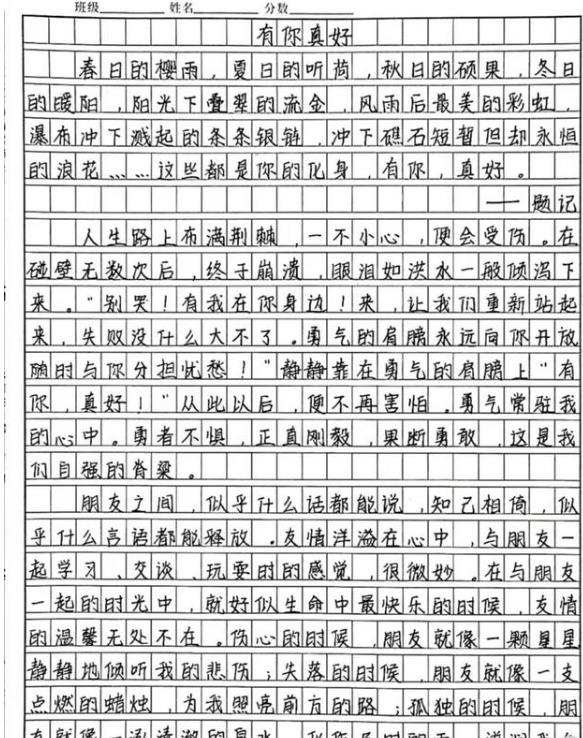 班级 姓名 分数
有你真好
春日的樱雨，夏日的听荷，秋日的硕果，冬日
的暖阳，阳光下叠翠的流金，风雨后最美的彩虹，
瀑布冲下溅起的条条银链，冲下礁石短暂但却永恒
的浪花……这些都是你的化身，有你，真好。
——题记
人生路上布满荆棘，一不小心，便会受伤。在
碰壁无数次后，终于崩溃，眼泪如洪水一般倾泻下
来。"别哭！有我在你身边！来，让我们重新站起
来，失败没什么大不了。勇气的肩膀永远向你开放
随时与你分担忧愁！"静静靠在勇气的肩膀上"有
你，真好！"从此以后，便不再害怕。勇气常驻我
的心中。勇者不惧，正直刚毅，果断勇敢，这是我
们自强的脊梁。
朋友之间，似乎什么话都能说，知己相倚，似
乎什么言语都能释放。友情洋溢在心中，与朋友一
起学习、交谈、玩耍时的感觉，很微妙。在与朋友
一起的时光中，就好似生命中最快乐的时候，友情
的温馨无处不在。伤心的时候，朋友就像一颗星星
静静地倾听我的悲伤；失落的时候，朋友就像一支
点燃的蜡烛，为我照亮前方的路；孤独的时候，朋
友就像一